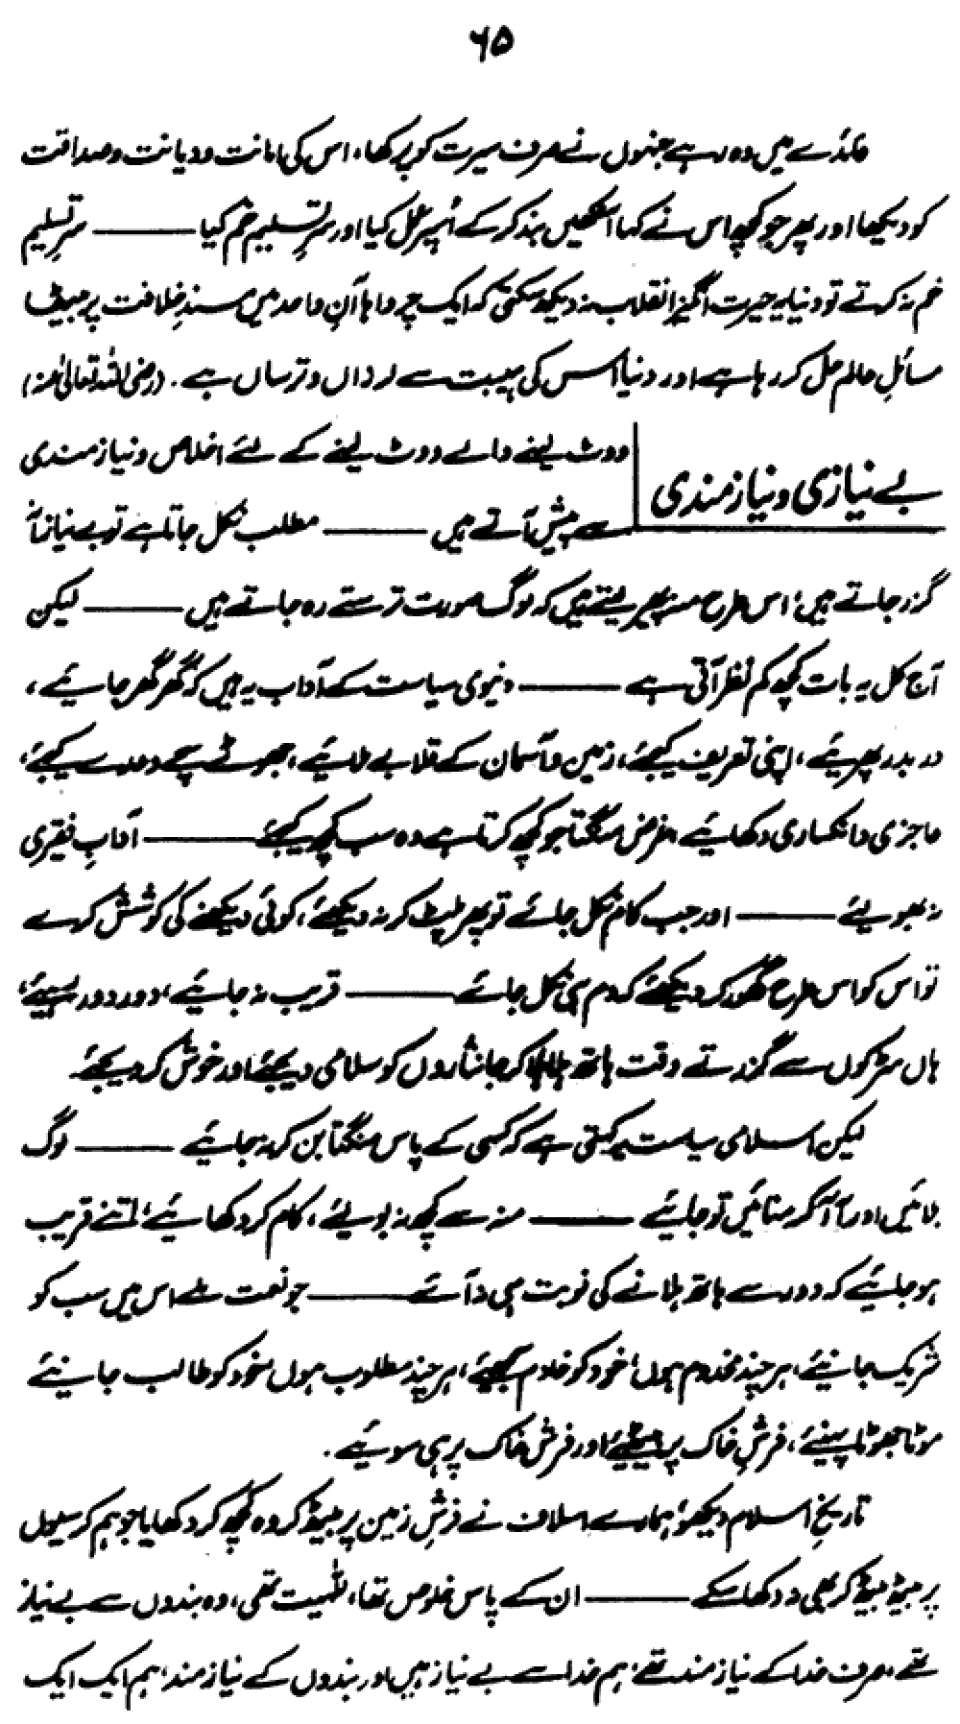 ۶۵
فائدے میں وہ رہے جنہوں نے صرف سیرت کو پرکھا، اس کی امانت و دیانت و صداقت
کو دیکھا اور پھر جو کچھ اس نے کہا آنکھیں بند کر کے اُس پر عمل کیا اور سرِ تسلیم خم کیا ——— سرِ تسلیم
خم نہ کرتے تو دنیا یہ حیرت انگیز انقلاب نہ دیکھ سکتی کہ ایک چرواہا آنِ واحد میں مسندِ خلافت پر بیٹھا
مسائلِ عالم حل کر رہا ہے اور دنیا اُس کی ہیبت سے لرزاں و ترساں ہے۔ (رضی اللہ تعالیٰ عنہ)
بے نیازی و نیاز مندی
ووٹ لینے والے ووٹ لینے کے لئے اخلاص و نیاز مندی
سے پیش آتے ہیں ——— مطلب نکل جاتا ہے تو بے نیازانہ
گزر جاتے ہیں، اس طرح منہ پھیر لیتے ہیں کہ لوگ صورت ترستے رہ جاتے ہیں ——— لیکن
آج کل یہ بات کچھ کم نظر آتی ہے ——— دنیوی سیاست کے آداب یہ ہیں کہ گھر گھر جائیے،
در بدر پھریئے، اپنی تعریف کیجئے، زمین و آسمان کے قلابے ملائیے، جھوٹے سچے وعدے کیجئے،
عاجزی و انکساری دکھائیے، غرض منگتا جو کچھ کرتا ہے وہ سب کچھ کیجئے ——— آدابِ فقیری
نہ بھولیئے ——— اور جب کام نکل جائے تو پھر پلٹ کر نہ دیکھئے، کوئی دیکھنے کی کوشش کرے
تو اس کو اس طرح گھور کر دیکھئے کہ دم ہی نکل جائے ——— قریب نہ جائیے، دور دور رہیئے،
ہاں سڑکوں سے گزرتے وقت ہاتھ ہلا ہلا کر جانثاروں کو سلامی دیجئے اور خوش کر دیجئے۔
لیکن اسلامی سیاست یہ کہتی ہے کہ کسی کے پاس منگتا بن کر نہ جائیے ——— لوگ
بلائیں اور آ آ کر منائیں تو جائیے ——— منہ سے کچھ نہ بولیئے، کام کر دکھائیے، اتنے قریب
ہو جائیے کہ دور سے ہاتھ ہلانے کی نوبت ہی نہ آئے ——— جو نعمت ملے اس میں سب کو
شریک جانیئے، ہر چند مخدوم ہوں، خود کو خادم سمجھیئے، ہر چند مطلوب ہوں خود کو طالب جانیئے
موٹا جھوٹا پہنیئے، فرشِ خاک پر بیٹھیئے اور فرشِ خاک پر ہی سوئیے۔
تاریخِ اسلام دیکھو، ہمارے اسلاف نے فرشِ زمین پر بیٹھ کر وہ کچھ کر دکھایا جو ہم کرسیوں
پر بیٹھ بیٹھ کر بھی نہ دکھا سکے ——— ان کے پاس خلوص تھا، للہیت تھی، وہ بندوں سے بے نیاز
تھے، صرف خدا کے نیاز مند تھے، ہم خدا سے بے نیاز ہیں اور بندوں کے نیاز مند، ہم ایک ایک